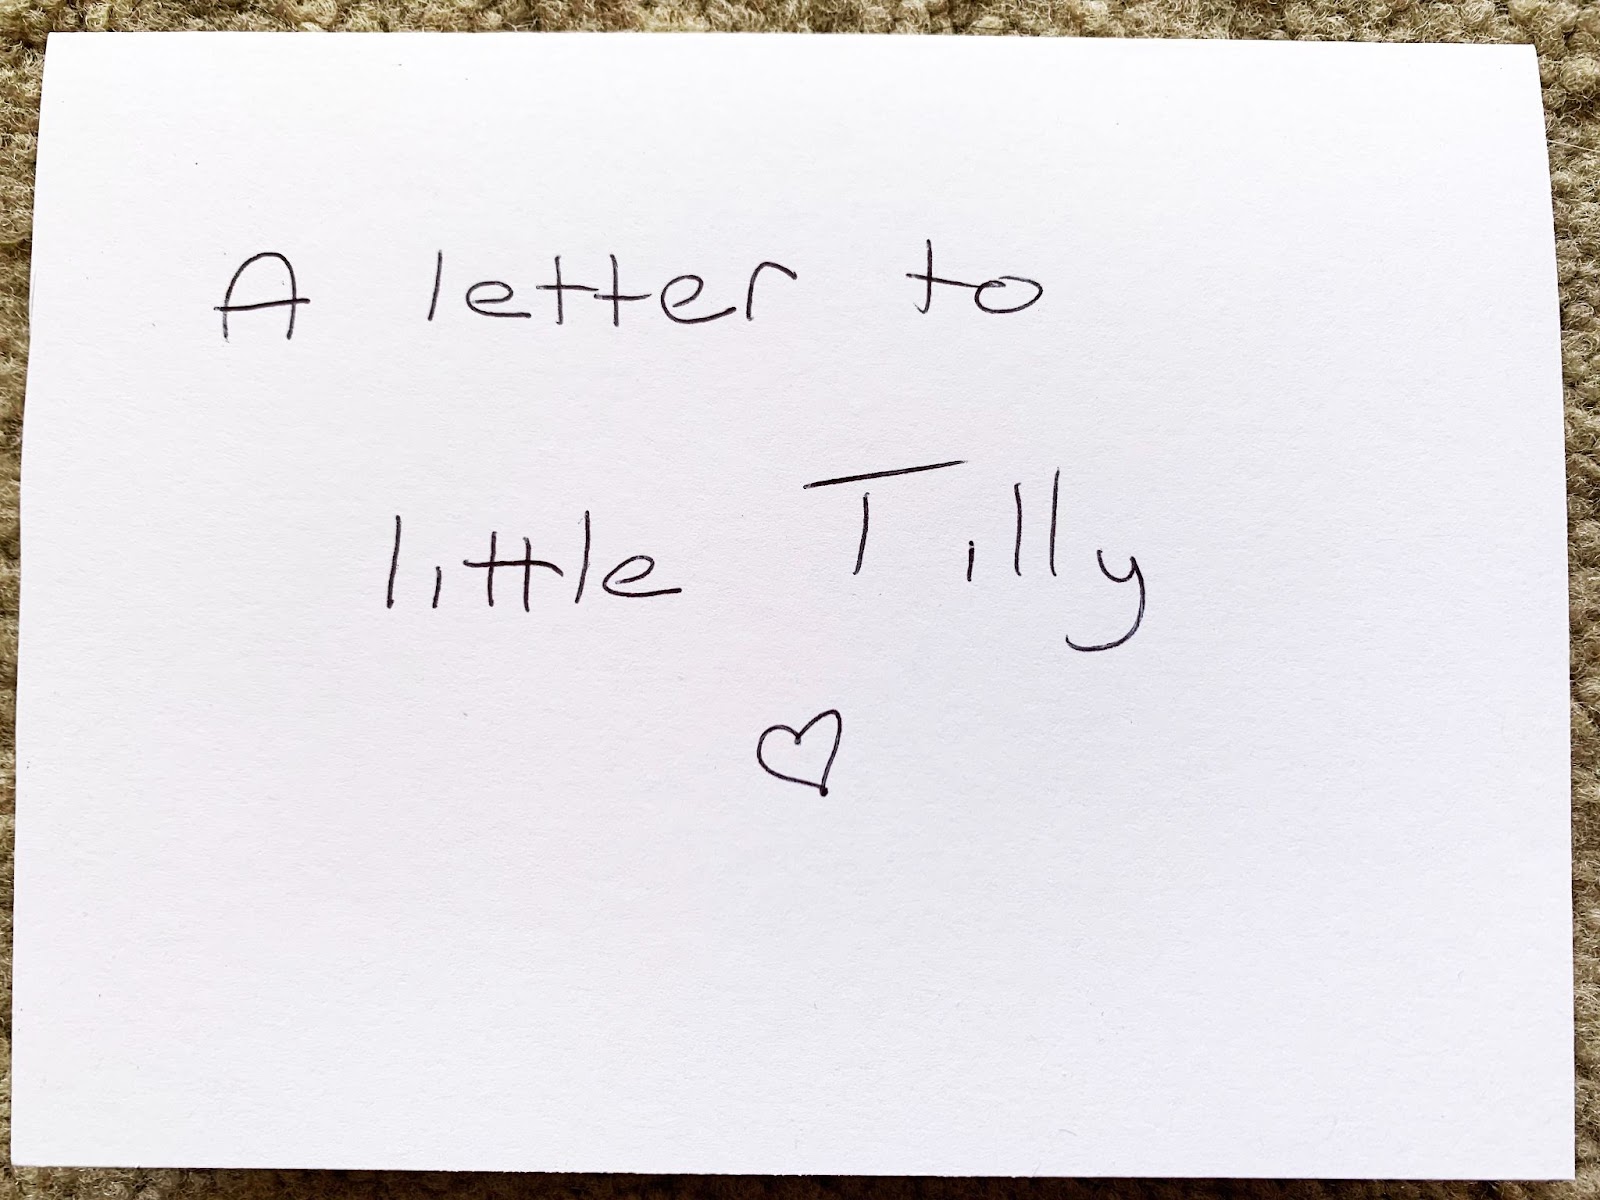 A letter to
little Tilly